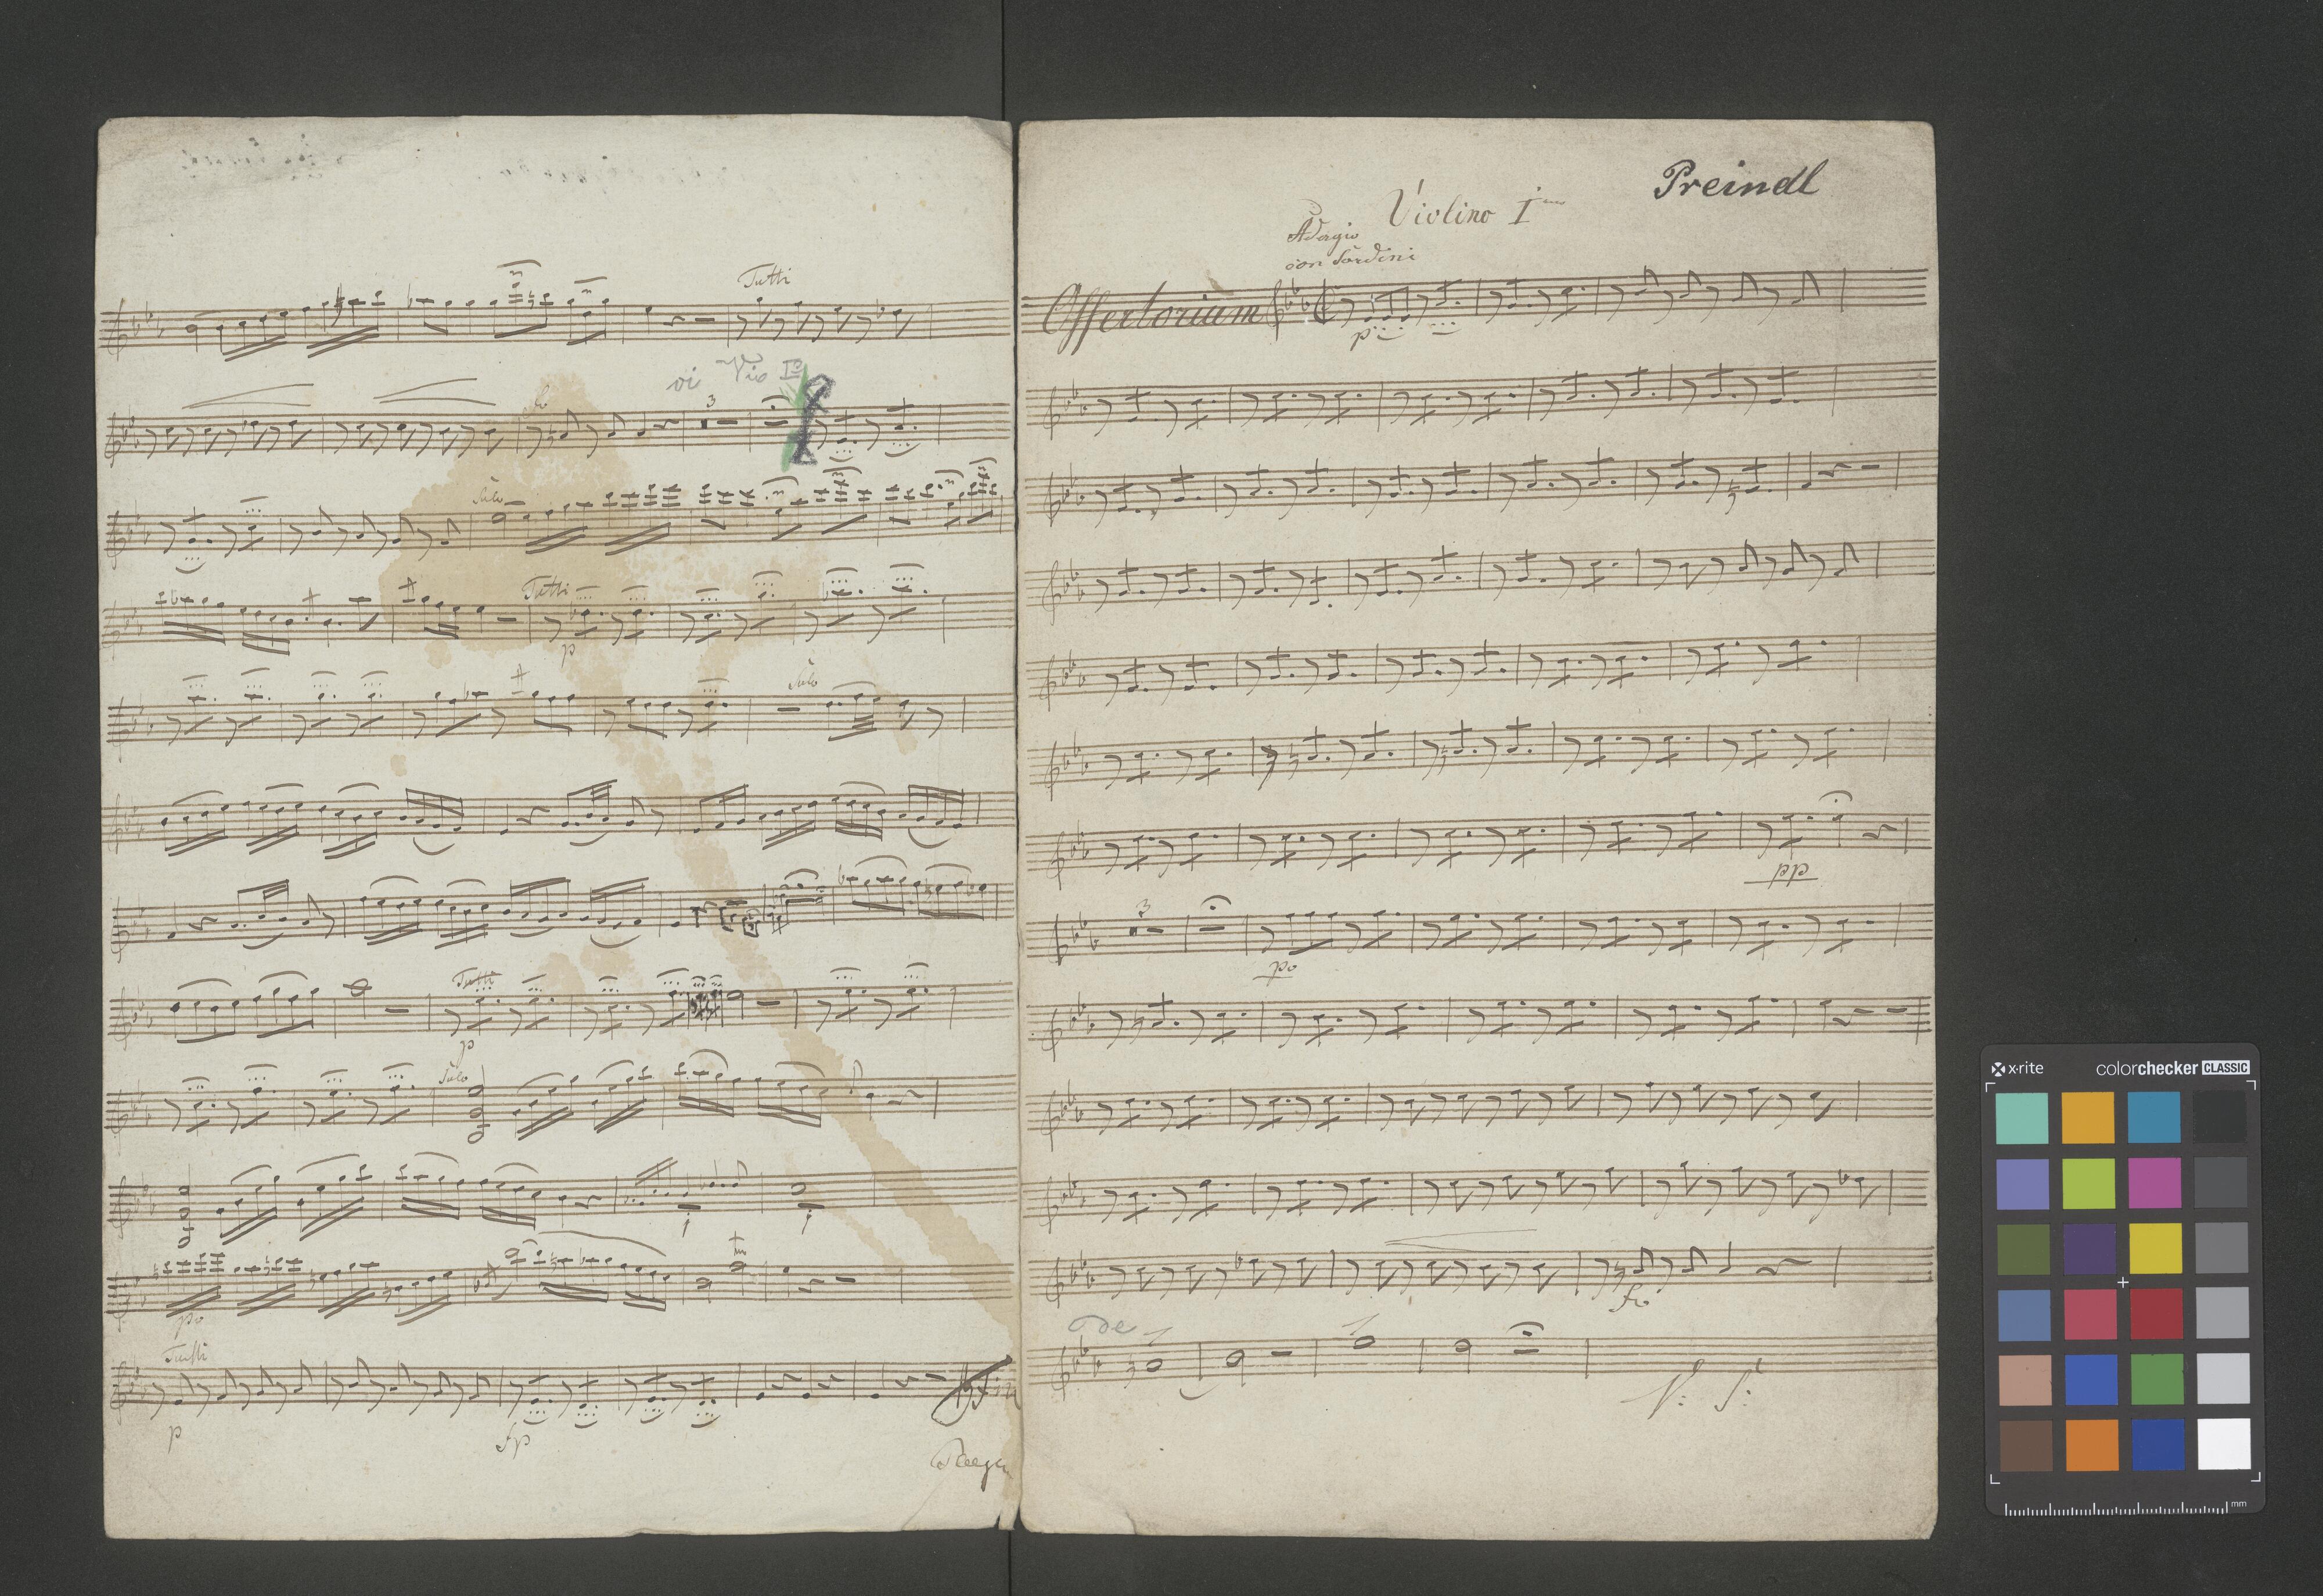 Tutti
vi Vio I<sup>o</sup>
3
f
Solo
Tutti
p
Solo
Tutti
p
Solo
po
Tutti
p
fp
Preindl
Violino I<sup>mo</sup>
Adagio
con Sordini
Offertorium
p
pp
3
po
fo
V: S:
x·rite colorchecker CLASSIC
mm